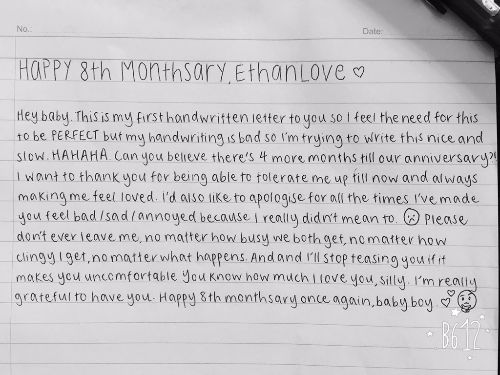 No..
Date:
HAPPY 8th MONTHSARY, EthanLove ♡
Hey baby. This is my first handwritten letter to you so I feel the need for this
to be PERFECT but my handwriting is bad so I'm trying to write this nice and
slow. HAHAHA. Can you believe there's 4 more months till our anniversary?!
I want to thank you for being able to tolerate me up till now and always
making me feel loved. I'd also like to apologise for all the times I've made
you feel bad/sad/annoyed because I really didn't mean to. ☹ Please
don't ever leave me, no matter how busy we both get, no matter how
clingy I get, no matter what happens. And and I'll stop teasing you if it
makes you uncomfortable. You know how much I love you, silly. I'm really
grateful to have you. Happy 8th monthsary once again, baby boy. ♡
B612